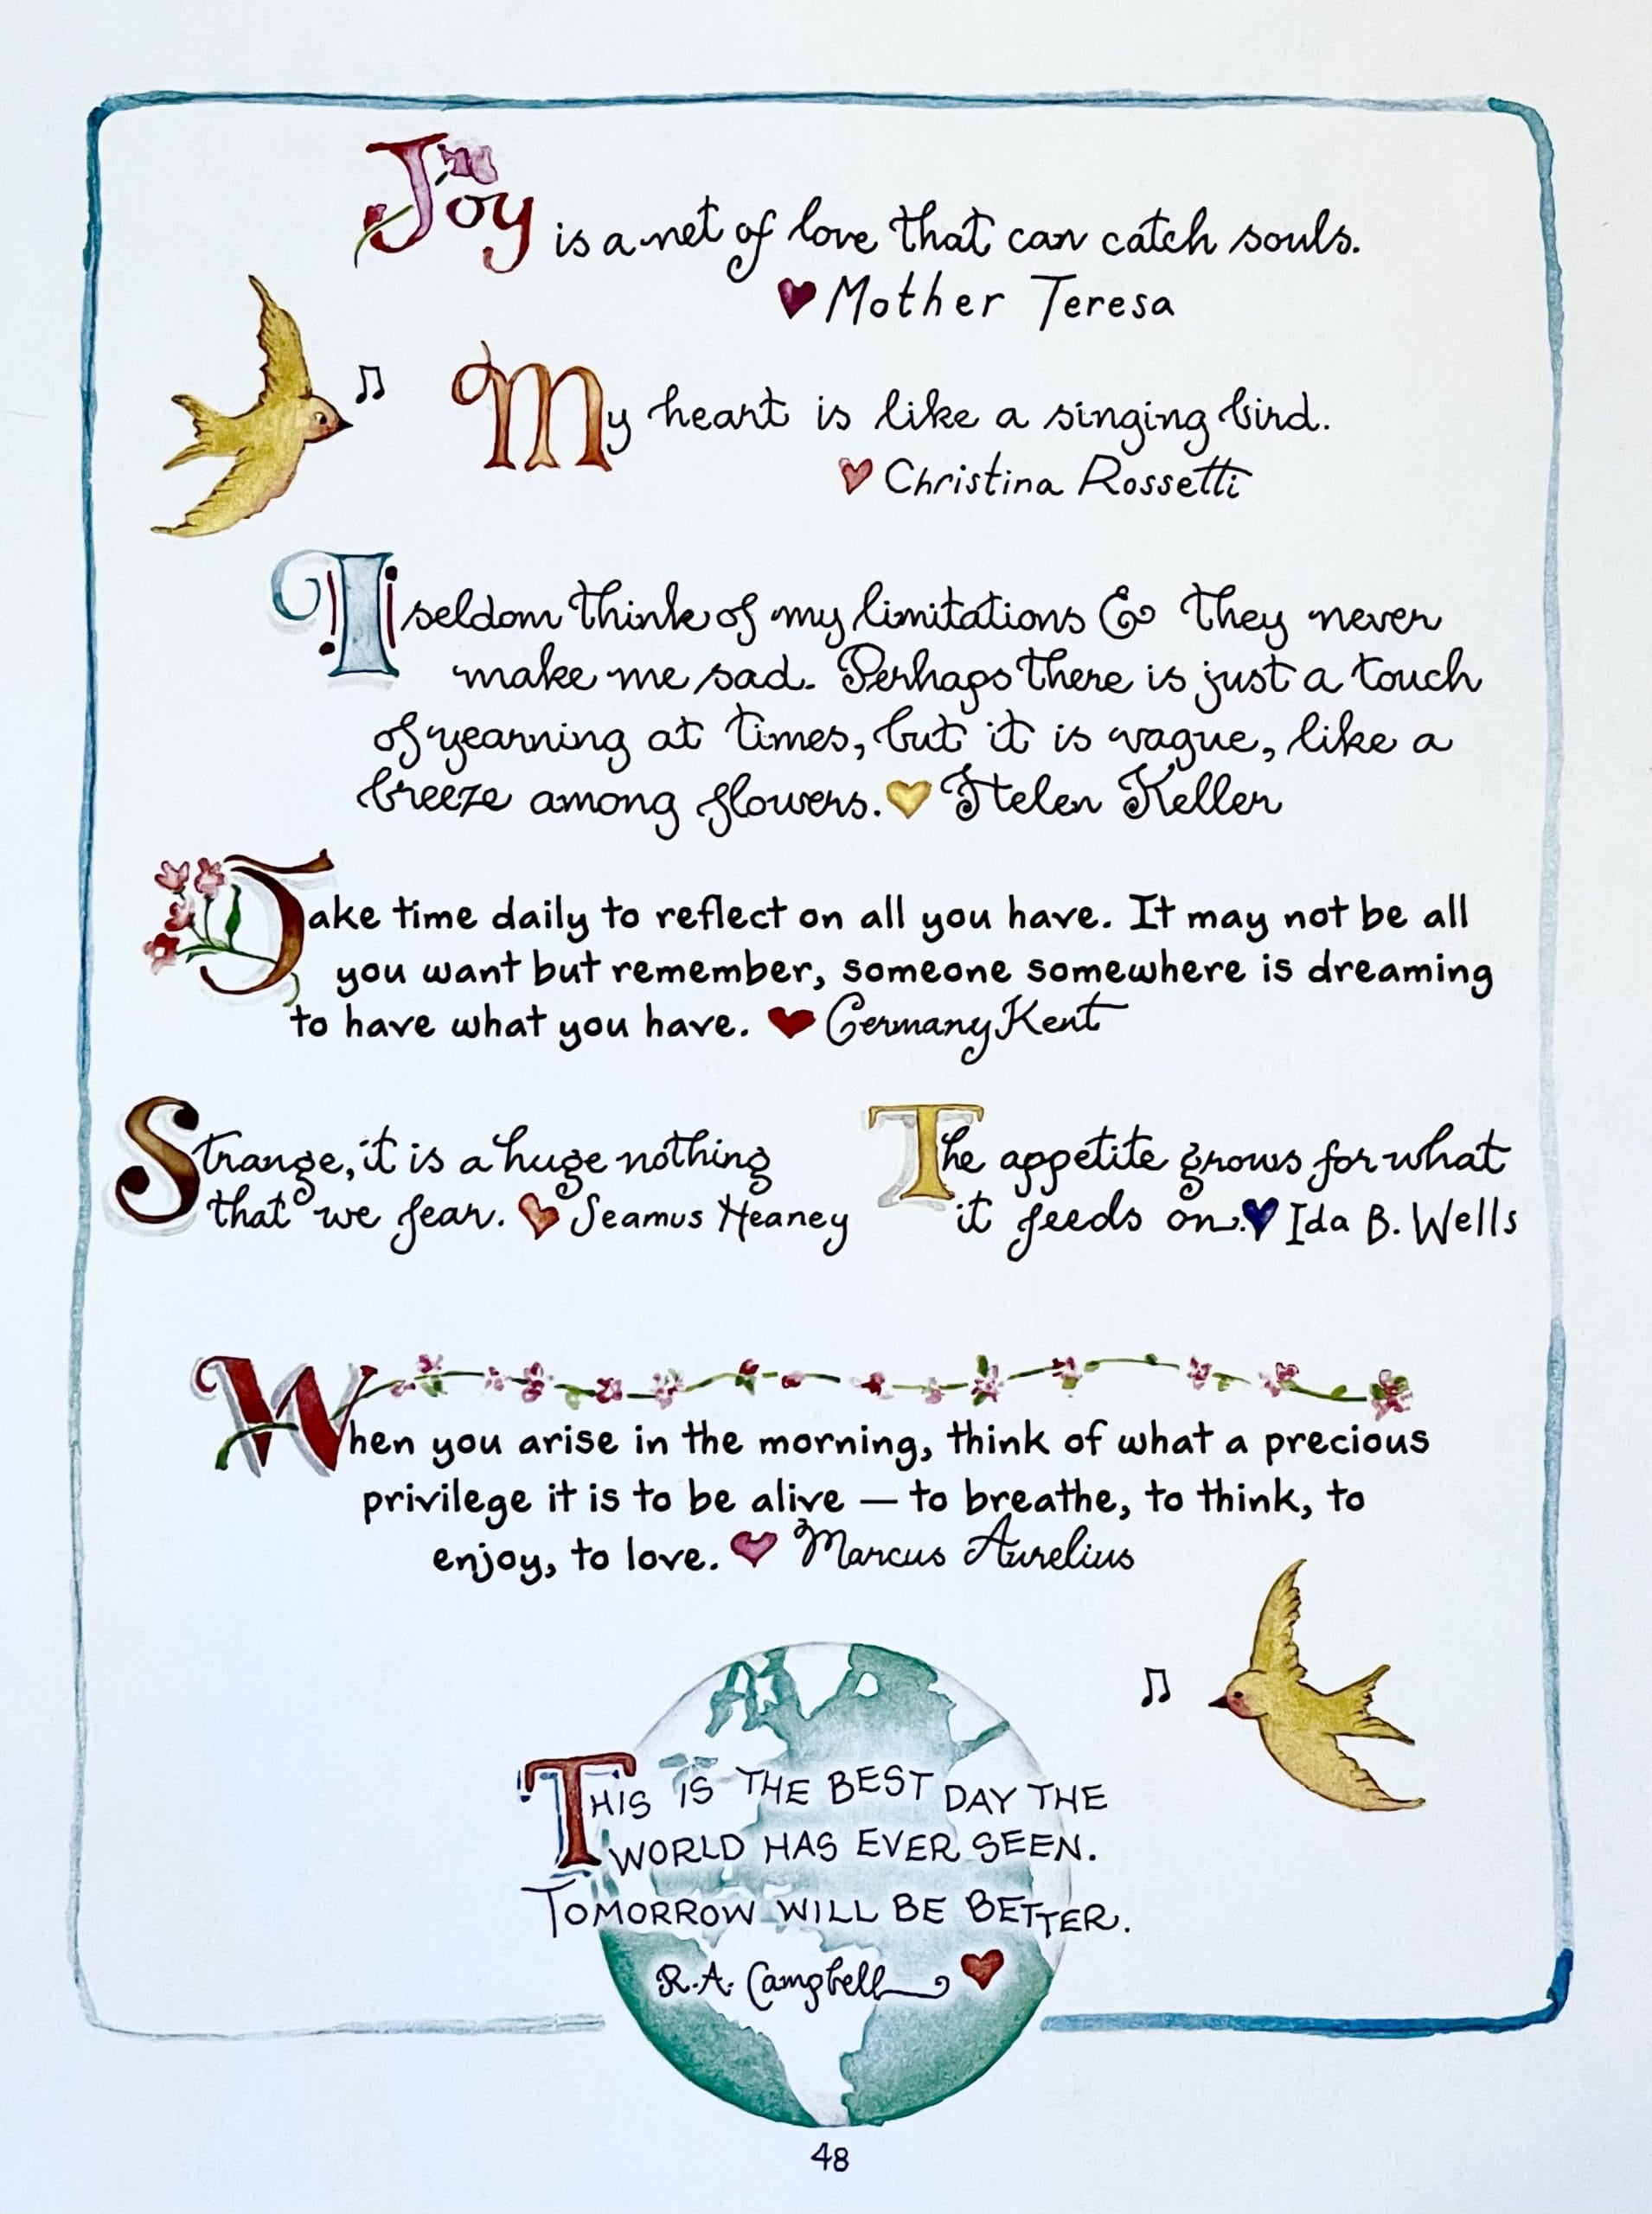 Joy is a net of love that can catch souls.
♥ Mother Teresa
My heart is like a singing bird.
♥ Christina Rossetti
I seldom think of my limitations & they never
make me sad. Perhaps there is just a touch
of yearning at times, but it is vague, like a
breeze among flowers. ♥ Helen Keller
Take time daily to reflect on all you have. It may not be all
you want but remember, someone somewhere is dreaming
to have what you have. ♥ Germany Kent
Strange, it is a huge nothing
that we fear. ♥ Seamus Heaney
The appetite grows for what
it feeds on. ♥ Ida B. Wells
When you arise in the morning, think of what a precious
privilege it is to be alive — to breathe, to think, to
enjoy, to love. ♥ Marcus Aurelius
THIS IS THE BEST DAY THE
WORLD HAS EVER SEEN.
TOMORROW WILL BE BETTER.
R.A. Campbell ♥
48